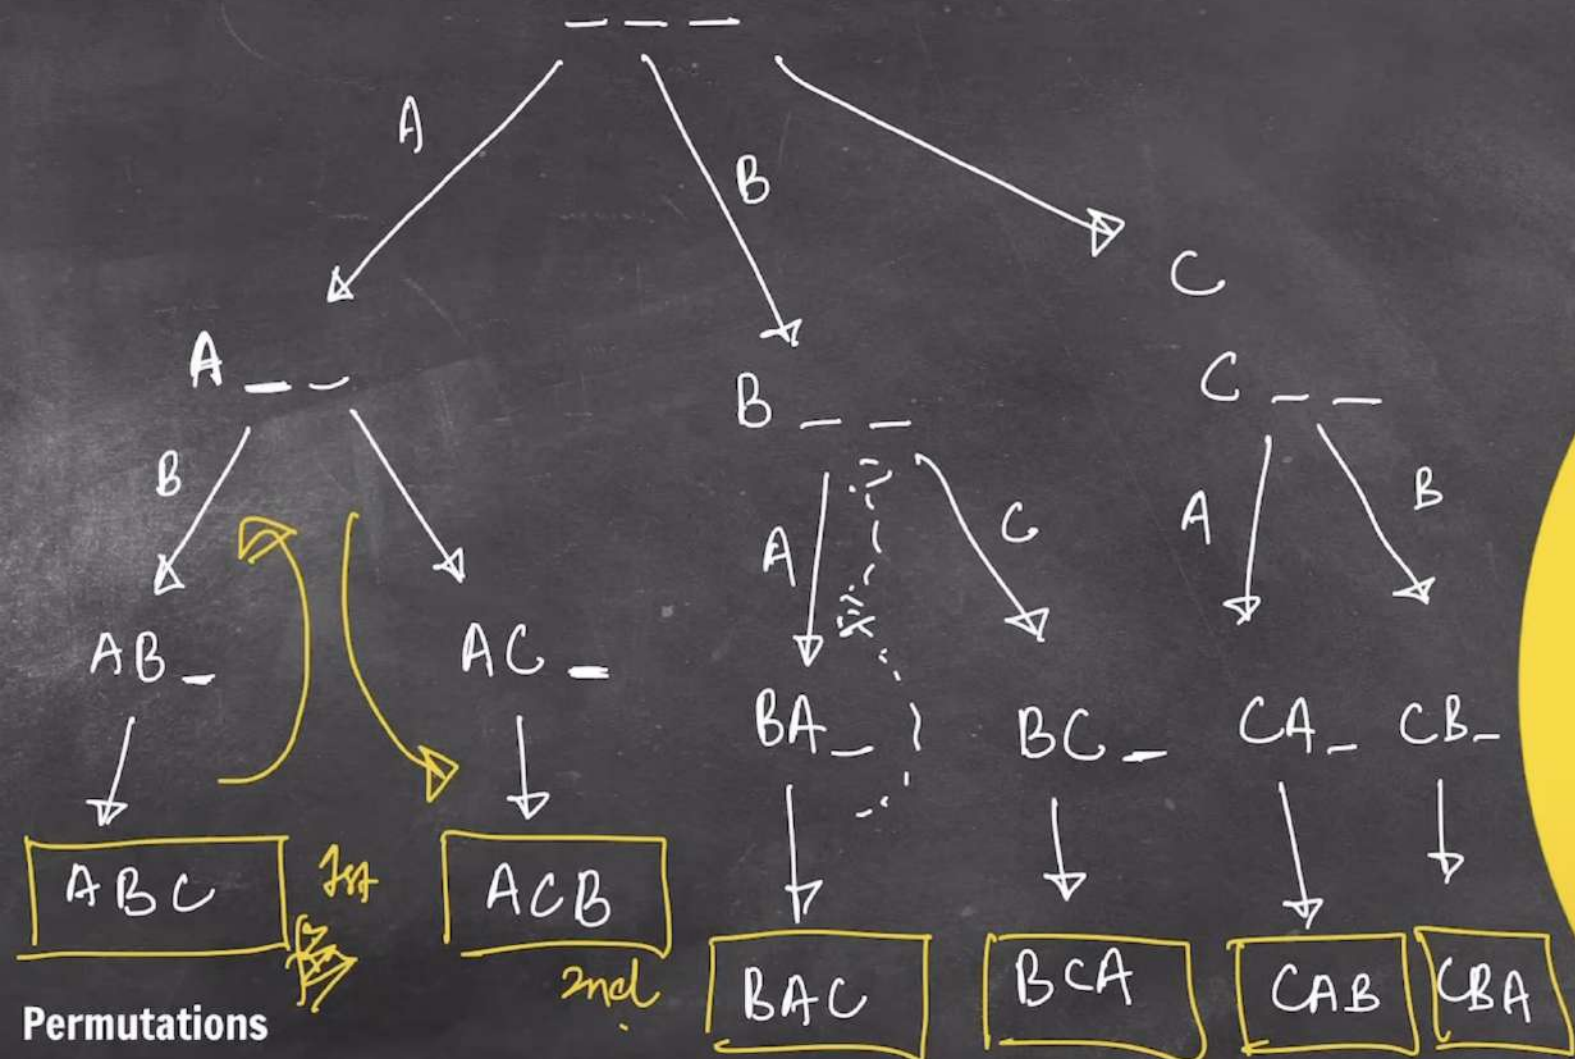 _ _ _
A
B
C
A _ _
B _ _
C _ _
B
A
C
A
B
AB _
AC _
BA _
BC _
CA _
CB _
ABC
1st
ACB
2nd
BAC
BCA
CAB
CBA
Permutations